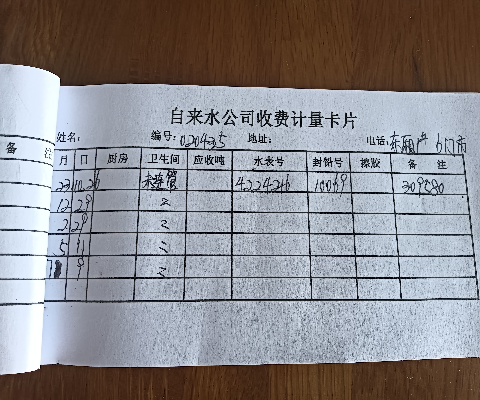 自来水公司收费计量卡片
姓名: 编号: 0204235 地址: 电话:
备 注 月 日 厨房 卫生间 应收吨 水表号 封铅号 橡胶 备 注
23 10.26 未连管 4224246 10069 309580
12 29 2
2 29 2
5 11 2
9 2